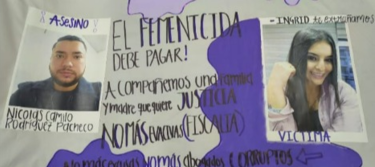 ASESINO
NICOLAS CAMILO
RODRIGUEZ PACHECO
EL FEMENICIDA
DEBE PAGAR!
ACOMPAÑEMOS UNA FAMILIA
Y MADRE QUE QUIERE JUSTICIA
NO MÁS EXCUSAS (FISCALIA)
NO MAS abogados CORRUPTOS
- INGRID te extrañamos
VICTIMA